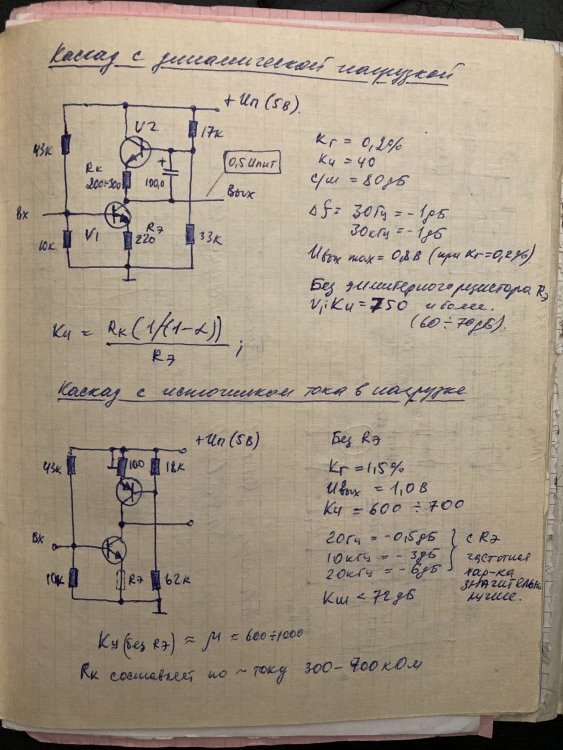 Каскад с динамической нагрузкой
+Uп (5В)
V2
17к
43к
Rк
200÷300
+
100,0
0,5Uпит
Вых
Вх
V1
Rэ
220
10к
33к
Кг = 0,2%
Кu = 40
с/ш = 80дБ
Δf = 30Гц = -1дБ
30кГц = -1дБ
Uвых max = 0,8В (при Кг=0,2%)
Без эмиттерного резистора Rэ
V1 Кu = 750 и более.
(60÷70дБ).
Кu = Rк (1/(1-α)) / Rэ ;
Каскад с источником тока в нагрузке
+Uп (5В)
43к
100
18к
Вх
10к
Rэ
62к
Без Rэ
Кг = 1,5%
Uвых = 1,0В
Кu = 600 ÷ 700
20Гц = -0,5дБ
10кГц = -3дБ
20кГц = -6дБ
с Rэ
частотная
хар-ка
значительно
лучше.
Кш < 72дБ
Кu (без Rэ) ≈ μ ≈ 600÷1000
Rк составляет по ~ току 300-700кОм